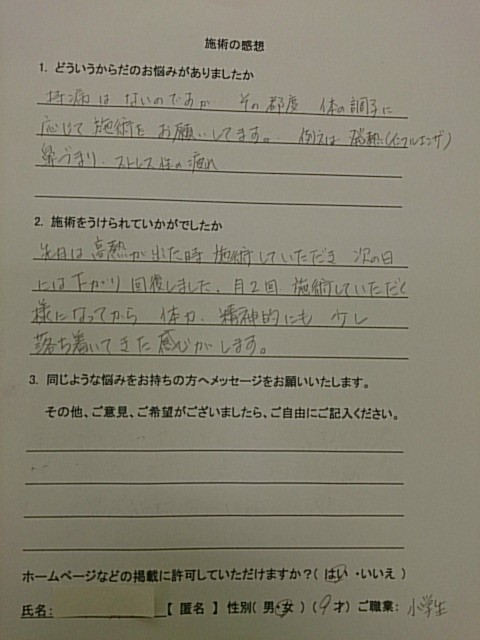 施術の感想
1. どういうからだのお悩みがありましたか
持病はないのですが その都度 体の調子に
応じて施術をお願いしてます。例えば 発熱(インフルエンザ)
鼻づまり、ストレス 体の疲れ
2. 施術をうけられていかがでしたか
先日は高熱が出た時 施術していただき 次の日
には下がり回復しました。月2回 施術していただく
様になってから 体力、精神的にも 少し
落ち着いてきた感じがします。
3. 同じような悩みをお持ちの方へメッセージをお願いいたします。
その他、ご意見、ご希望がございましたら、ご自由にご記入ください。
ホームページなどの掲載に許可していただけますか？( はい ・いいえ )
氏名: 【 匿名 】 性別( 男・女 ) ( 9才) ご職業: 小学生